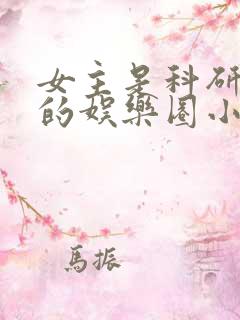 女主是科研
的娱樂圈小
馬振